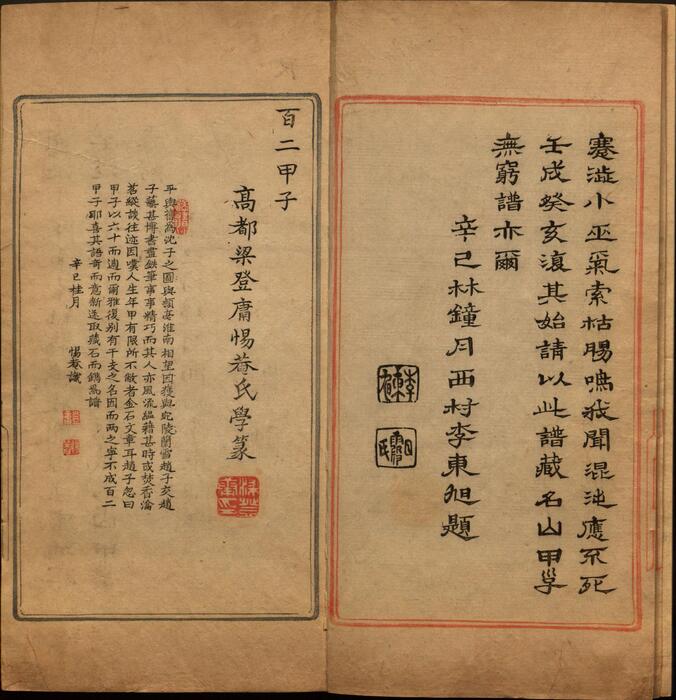 蹇澁小巫氣索枯腸鳴我聞混沌應不死
壬戌癸亥復其始請以此譜藏名山甲子
無窮譜亦爾
辛巳林鐘月西村李東旭題
百二甲子
高都梁登庸惕菴氏學篆
平輿舊為沈子之國與頓毫淮南相望因獲與宛陵蘭雪趙子交趙
子藝甚博書畫鐵筆事事精巧而其人亦風流醞藉甚時或焚香瀹
茗縱談往迹因嘆人生年甲有限所不敝者金石文章耳趙子忽曰
甲子以六十而週而爾雅復別有干支之名因而兩之寧不成百二
甲子耶喜其語奇而意新遂取藏石而鐫為譜
辛巳桂月
惕菴識